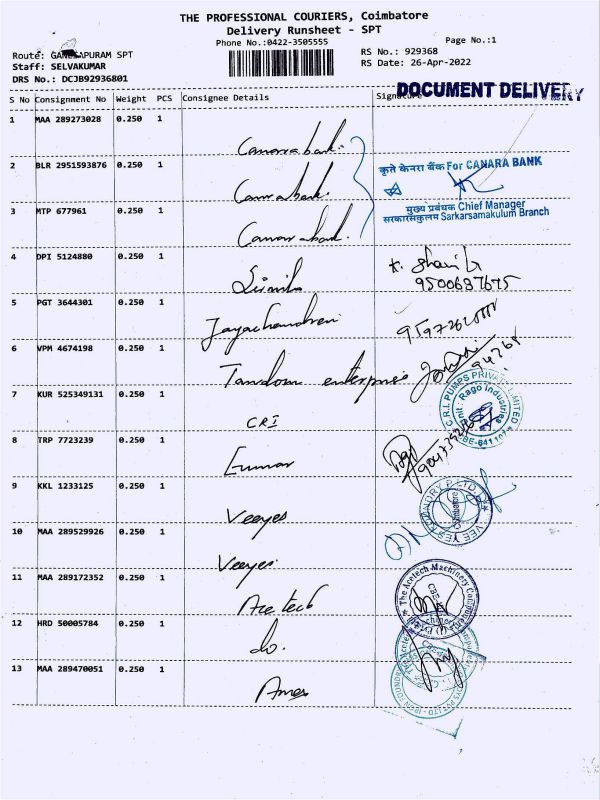 THE PROFESSIONAL COURIERS, Coimbatore
Delivery Runsheet - SPT
Phone No.:0422-3505555
Page No.:1
Route: GANESAPURAM SPT
RS No.: 929368
Staff: SELVAKUMAR
RS Date: 26-Apr-2022
DRS No.: DCJB92936801
DOCUMENT DELIVERY
S No Consignment No Weight PCS Consignee Details Signature
1 MAA 289273028 0.250 1 Canara bank.
2 BLR 2951593876 0.250 1 Canara bank.
कृते केनरा बैंक For CANARA BANK
मुख्य प्रबंधक Chief Manager
सरकारसामकुलम Sarkarsamakulum Branch
3 MTP 677961 0.250 1 Canara bank.
4 DPI 5124880 0.250 1
9500687675
5 PGT 3644301 0.250 1 Jayachandren
6 VPM 4674198 0.250 1 Tandom enterprise
7 KUR 525349131 0.250 1 CRI
C.R.I. PUMPS PRIVATE LIMITED
Unit: Rago Industries
8 TRP 7723239 0.250 1 Kumar
9 KKL 1233125 0.250 1 Veeyes
VEE YES FOUNDRY P LTD
Coimbatore
10 MAA 289529926 0.250 1 Veeyes
11 MAA 289172352 0.250 1 Ace tech
The Acetech Machinery Components
12 HRD 50005784 0.250 1 do.
13 MAA 289470051 0.250 1